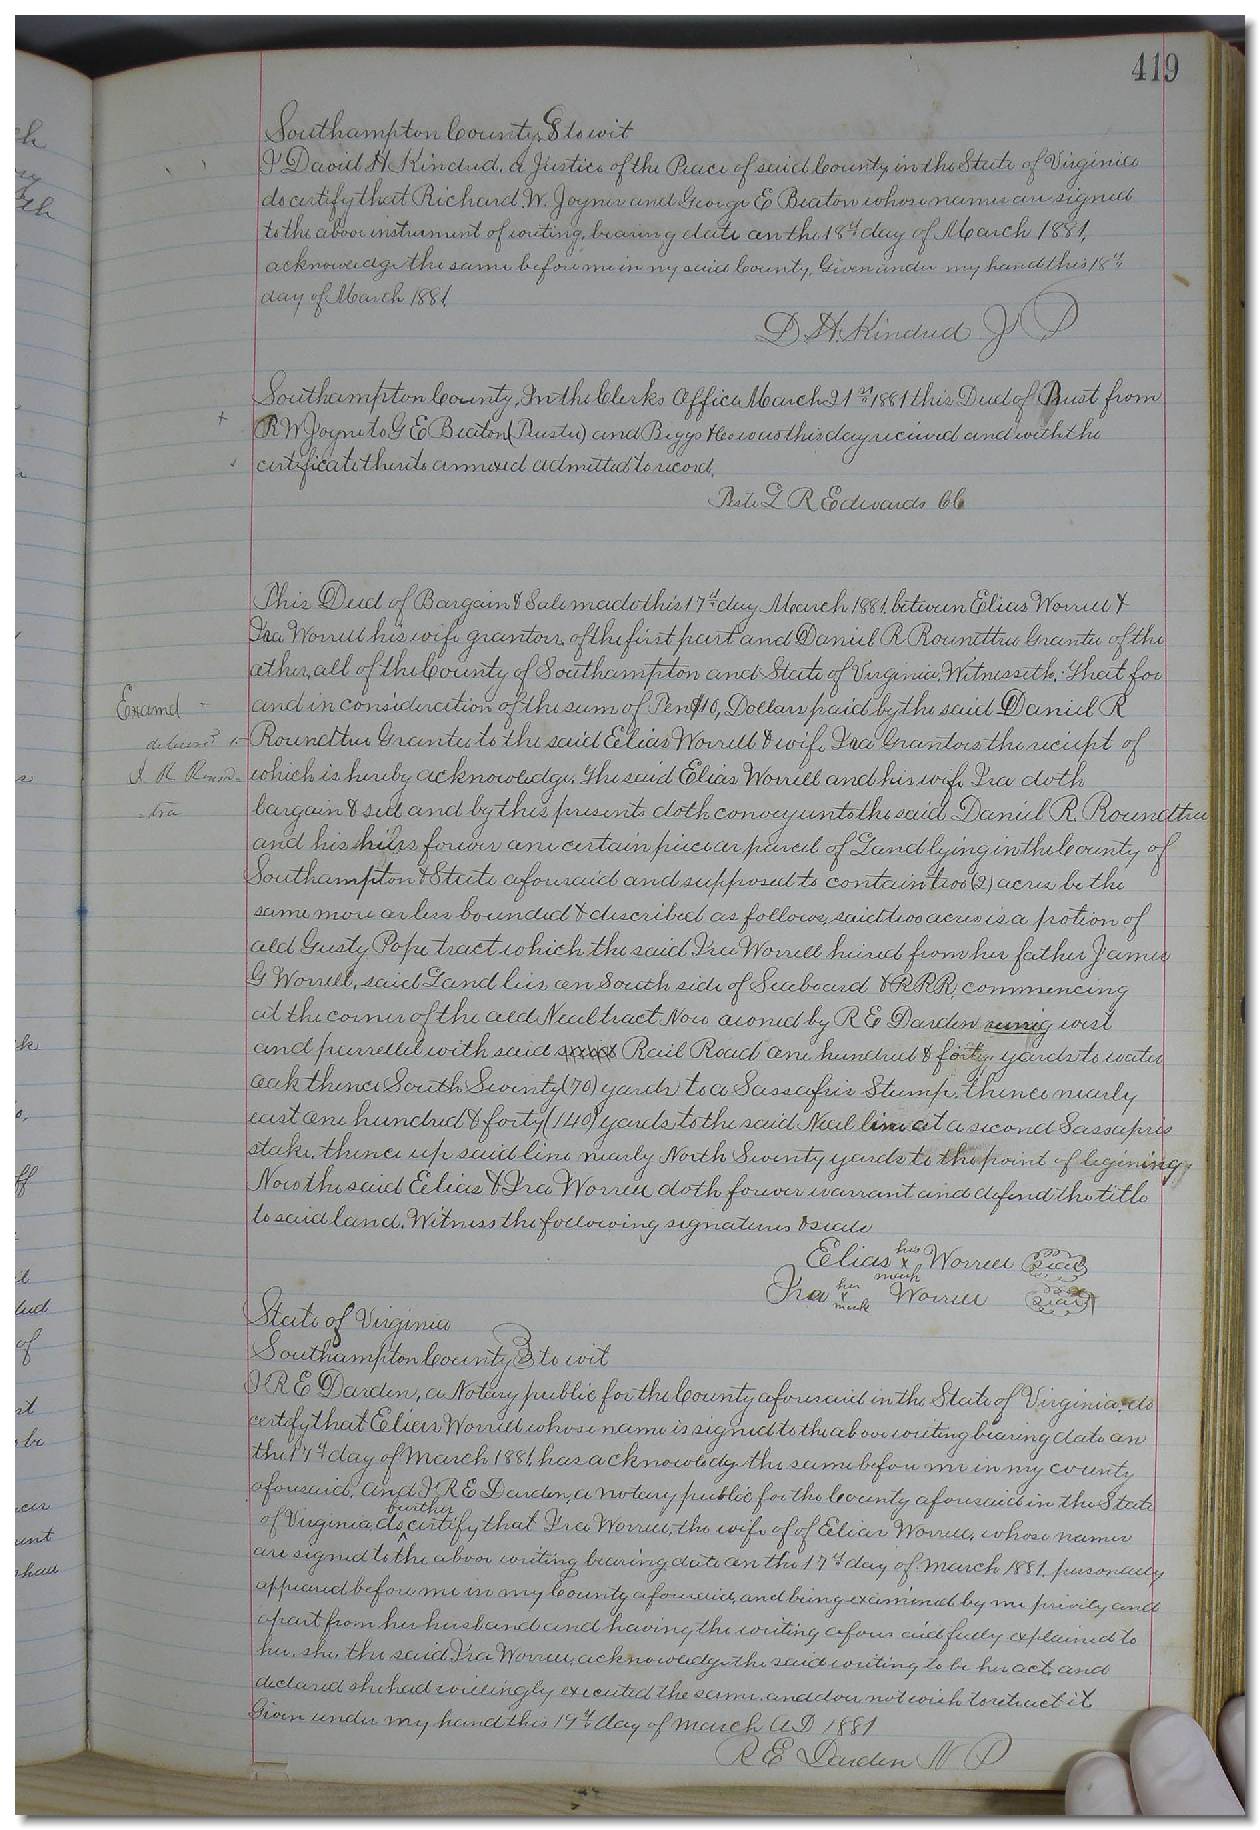 419
Southampton County, S to wit
I David H Kindred, a Justice of the Peace of said County, in the State of Virginia
do certify that Richard. W. Joyner and George E Beaton whose names are signed
to the above instrument of writing, bearing date on the 18th day of March 1881,
acknowledge the same before me in my said County, Given under my hand this 18th
day of March 1881
D H. Kindred J P
Southampton County, In the Clerks Office March 21st 1881 this Deed of Trust from
R W Joyne to G E Beaton (Trustee) and Beggs & Co was this day received and with the
certificate thereto annexed admitted to record.
Teste L R Edwards CC
This Deed of Bargain & Sale made this 17th day March 1881, between Elias Worrell &
Ira Worrell his wife grantors, of the first part and Daniel R Roundtree Grantee of the
other, all of the County of Southampton and State of Virginia, Witnesseth, That for
Examd
and in consideration of the sum of Ten $10, Dollars paid by the said Daniel R
Roundtree Grantee to the said Elias Worrell & wife Ira Grantors the reciept of
which is hereby acknowledge. The said Elias Worrell and his wife Ira doth
bargain & sell and by this presents doth convey unto the said Daniel R. Roundtree
and his heirs forever one certain piece or parcel of Land lying in the County of
Southampton & State aforesaid and supposed to contain two (2) acres be the
same more or less bounded & described as follows, said two acres is a potion of
old Gusty Pope tract which the said Ira Worrell heired from her father James
G Worrell, said Land lies on South side of Seaboard & R R R, commencing
at the corner of the old Neal tract Now owned by R E Darden runing west
and parrellel with said said Rail Road one hundred & forty yards to water
oak thence South Seventy (70) yards to a Sassafris Stump, thence nearly
east one hundred & forty (140) yards to the said Neal line at a second Sassafris
stake, thence up said line nearly North Seventy yards to the point of begining
Now the said Elias & Ira Worrell doth forever warrant and defend the title
to said land. Witness the following signatures & seals
Elias his x mark Worrell Seal
Ira her x mark Worrell Seal
State of Virginia
Southampton County, to wit
I R E Darden, a Notary public for the County aforesaid in the State of Virginia. do
certify that Elias Worrell whose name is signed to the above writing bearing date on
the 17th day of March 1881, has acknowledge the same before me in my county
aforesaid, and I R E Darden, a notary public for the County aforesaid in the State
of Virginia, do further certify that Ira Worrell, the wife of of Elias Worrell, whose names
are signed to the above writing bearing date on the 17th day of March 1881, personally
appeared before me in my County aforesaid, and being examined by me privily and
apart from her husband and having the writing afore said fully explained to
her, she the said Ira Worrell, acknowledge the said writing to be her act, and
declared she had willingly executed the same, and does not wish to retract it
Given under my hand this 19th day of March AD 1881
R E Darden N P